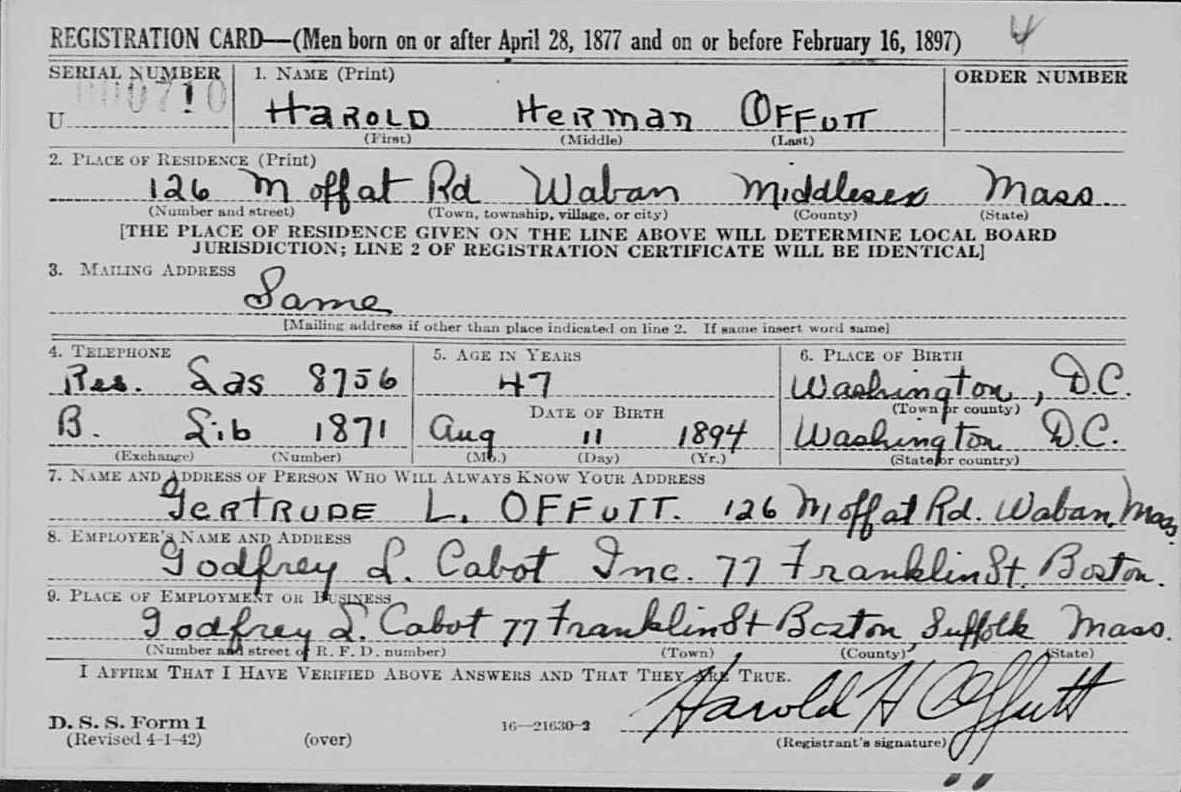 REGISTRATION CARD—(Men born on or after April 28, 1877 and on or before February 16, 1897)
SERIAL NUMBER 1. NAME (Print) ORDER NUMBER
U HAROLD HERMAN OFFUTT
(First) (Middle) (Last)
2. PLACE OF RESIDENCE (Print)
126 Moffat Rd Waban Middlesex Mass
(Number and street) (Town, township, village, or city) (County) (State)
[THE PLACE OF RESIDENCE GIVEN ON THE LINE ABOVE WILL DETERMINE LOCAL BOARD
JURISDICTION; LINE 2 OF REGISTRATION CERTIFICATE WILL BE IDENTICAL]
3. MAILING ADDRESS
Same
[Mailing address if other than place indicated on line 2. If same insert word same]
4. TELEPHONE 5. AGE IN YEARS 6. PLACE OF BIRTH
Res. Las 8756 47 Washington, D.C.
DATE OF BIRTH (Town or county)
B. Lib 1871 Aug 11 1894 Washington D.C.
(Exchange) (Number) (Mo.) (Day) (Yr.) (State or country)
7. NAME AND ADDRESS OF PERSON WHO WILL ALWAYS KNOW YOUR ADDRESS
GERTRUDE L. OFFUTT. 126 Moffat Rd. Waban, Mass
8. EMPLOYER'S NAME AND ADDRESS
Godfrey L. Cabot Inc. 77 Franklin St. Boston.
9. PLACE OF EMPLOYMENT OR BUSINESS
Godfrey L. Cabot 77 Franklin St Boston, Suffolk Mass.
(Number and street or R. F. D. number) (Town) (County) (State)
I AFFIRM THAT I HAVE VERIFIED ABOVE ANSWERS AND THAT THEY ARE TRUE.
Harold H Offutt
D. S. S. Form 1 16—21630-2
(Revised 4-1-42) (over) (Registrant's signature)